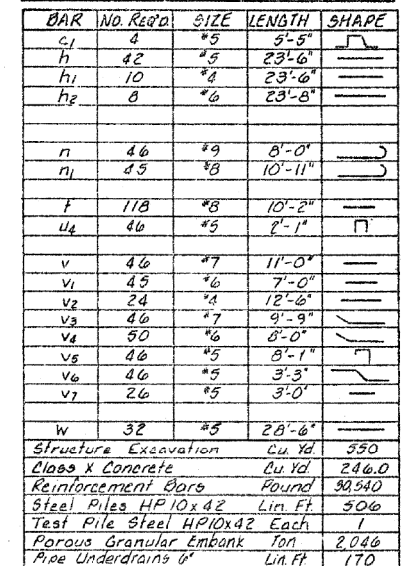 BAR NO. REQ'D. SIZE LENGTH SHAPE
c1 4 #5 5'-5"
h 42 #5 23'-6"
h1 10 #4 23'-6"
h2 8 #6 23'-8"
n 46 #9 8'-0"
n1 45 #8 10'-11"
t 118 #8 10'-2"
u4 46 #5 2'-1"
v 46 #7 11'-0"
v1 45 #6 7'-0"
v2 24 #4 12'-6"
v3 46 #7 9'-9"
v4 50 #6 8'-0"
v5 46 #5 8'-1"
v6 46 #5 3'-3"
v7 26 #5 3'-0"
w 32 #5 28'-6"
Structure Excavation Cu. Yd. 550
Class X Concrete Cu. Yd. 246.0
Reinforcement Bars Pound 30,540
Steel Piles HP 10x42 Lin. Ft. 506
Test Pile Steel HP10x42 Each 1
Porous Granular Embank Ton 2,046
Pipe Underdrains 6" Lin. Ft. 170